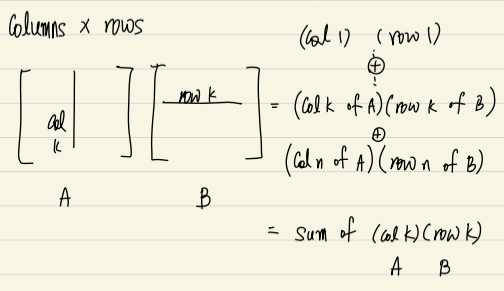 Columns × rows
(Col 1) (row 1)
⊕
[ col k ] [ row k ] = (Col k of A)(row k of B)
⊕
(Col n of A)(row n of B)
A B
= sum of (col k)(row k)
A B